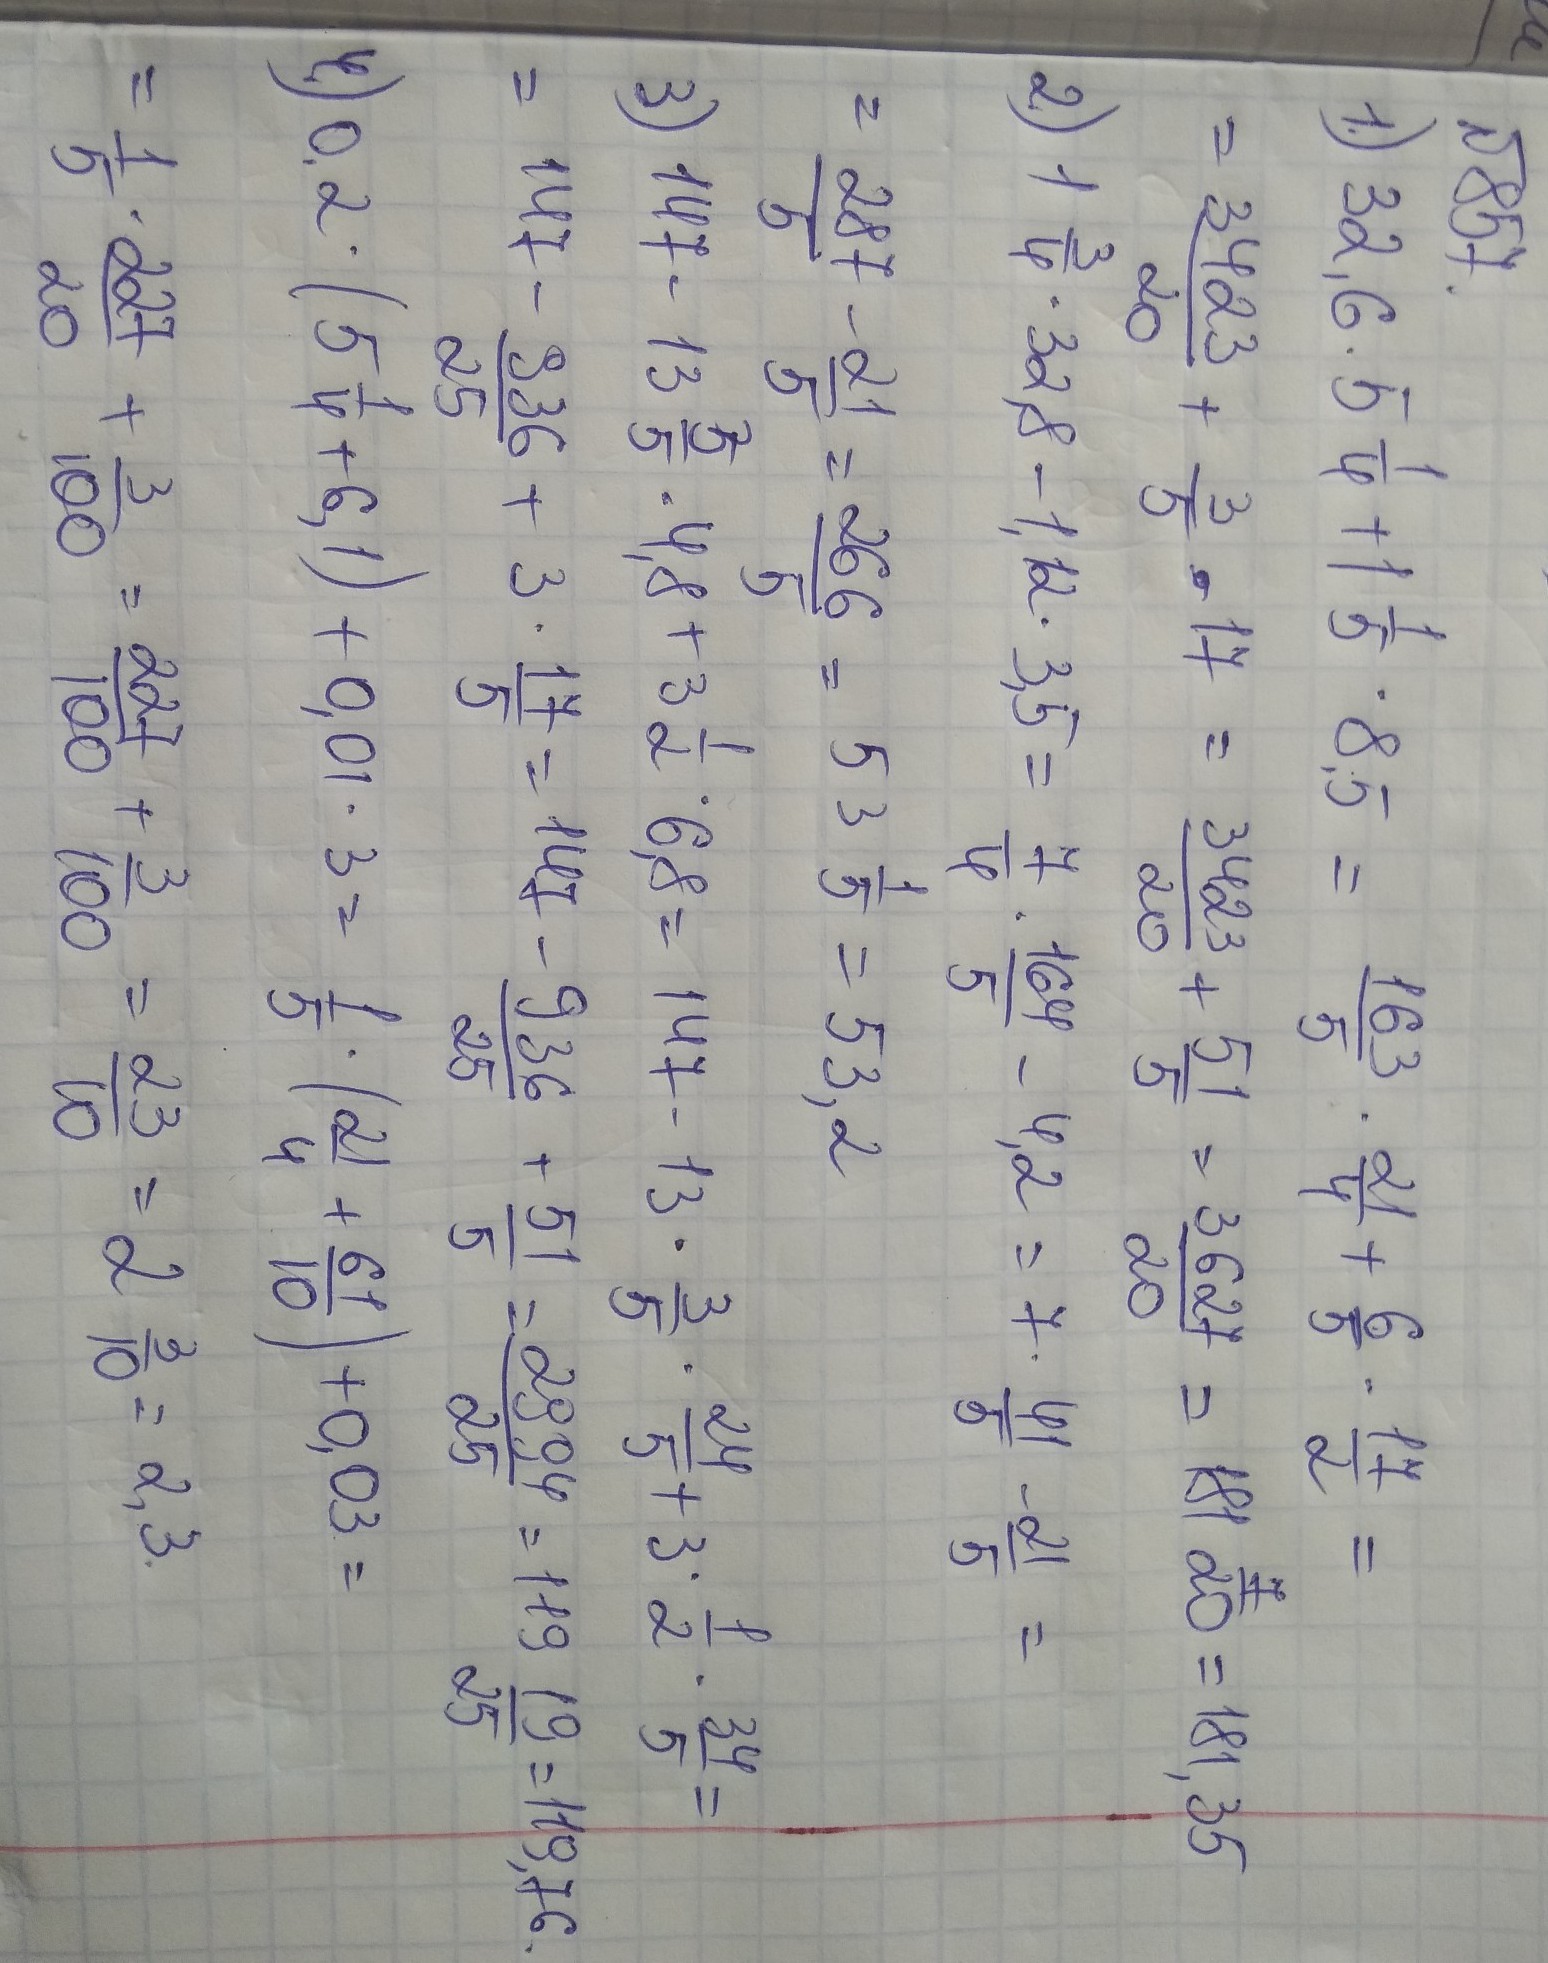 N857.
1.) 32,6 · 5 1/4 + 1 1/5 · 8,5 = 163/5 · 21/4 + 6/5 · 17/2 =
= 3423/20 + 3/5 · 17 = 3423/20 + 51/5 = 3627/20 = 181 7/20 = 181,35
2) 1 3/4 · 32,8 - 1,2 · 3,5 = 7/4 · 164/5 - 4,2 = 7 · 41/5 - 21/5 =
= 287/5 - 21/5 = 266/5 = 53 1/5 = 53,2
3) 147 - 13 3/5 · 4,8 + 3 1/2 · 6,8 = 147 - 13 · 3/5 · 24/5 + 3 · 1/2 · 34/5 =
= 147 - 936/25 + 3 · 17/5 = 147 - 936/25 + 51/5 = 2994/25 = 119 19/25 = 119,76.
4.) 0,2 · (5 1/4 + 6,1) + 0,01 · 3 = 1/5 · (21/4 + 61/10) + 0,03 =
= 1/5 · 227/20 + 3/100 = 227/100 + 3/100 = 23/10 = 2 3/10 = 2,3.